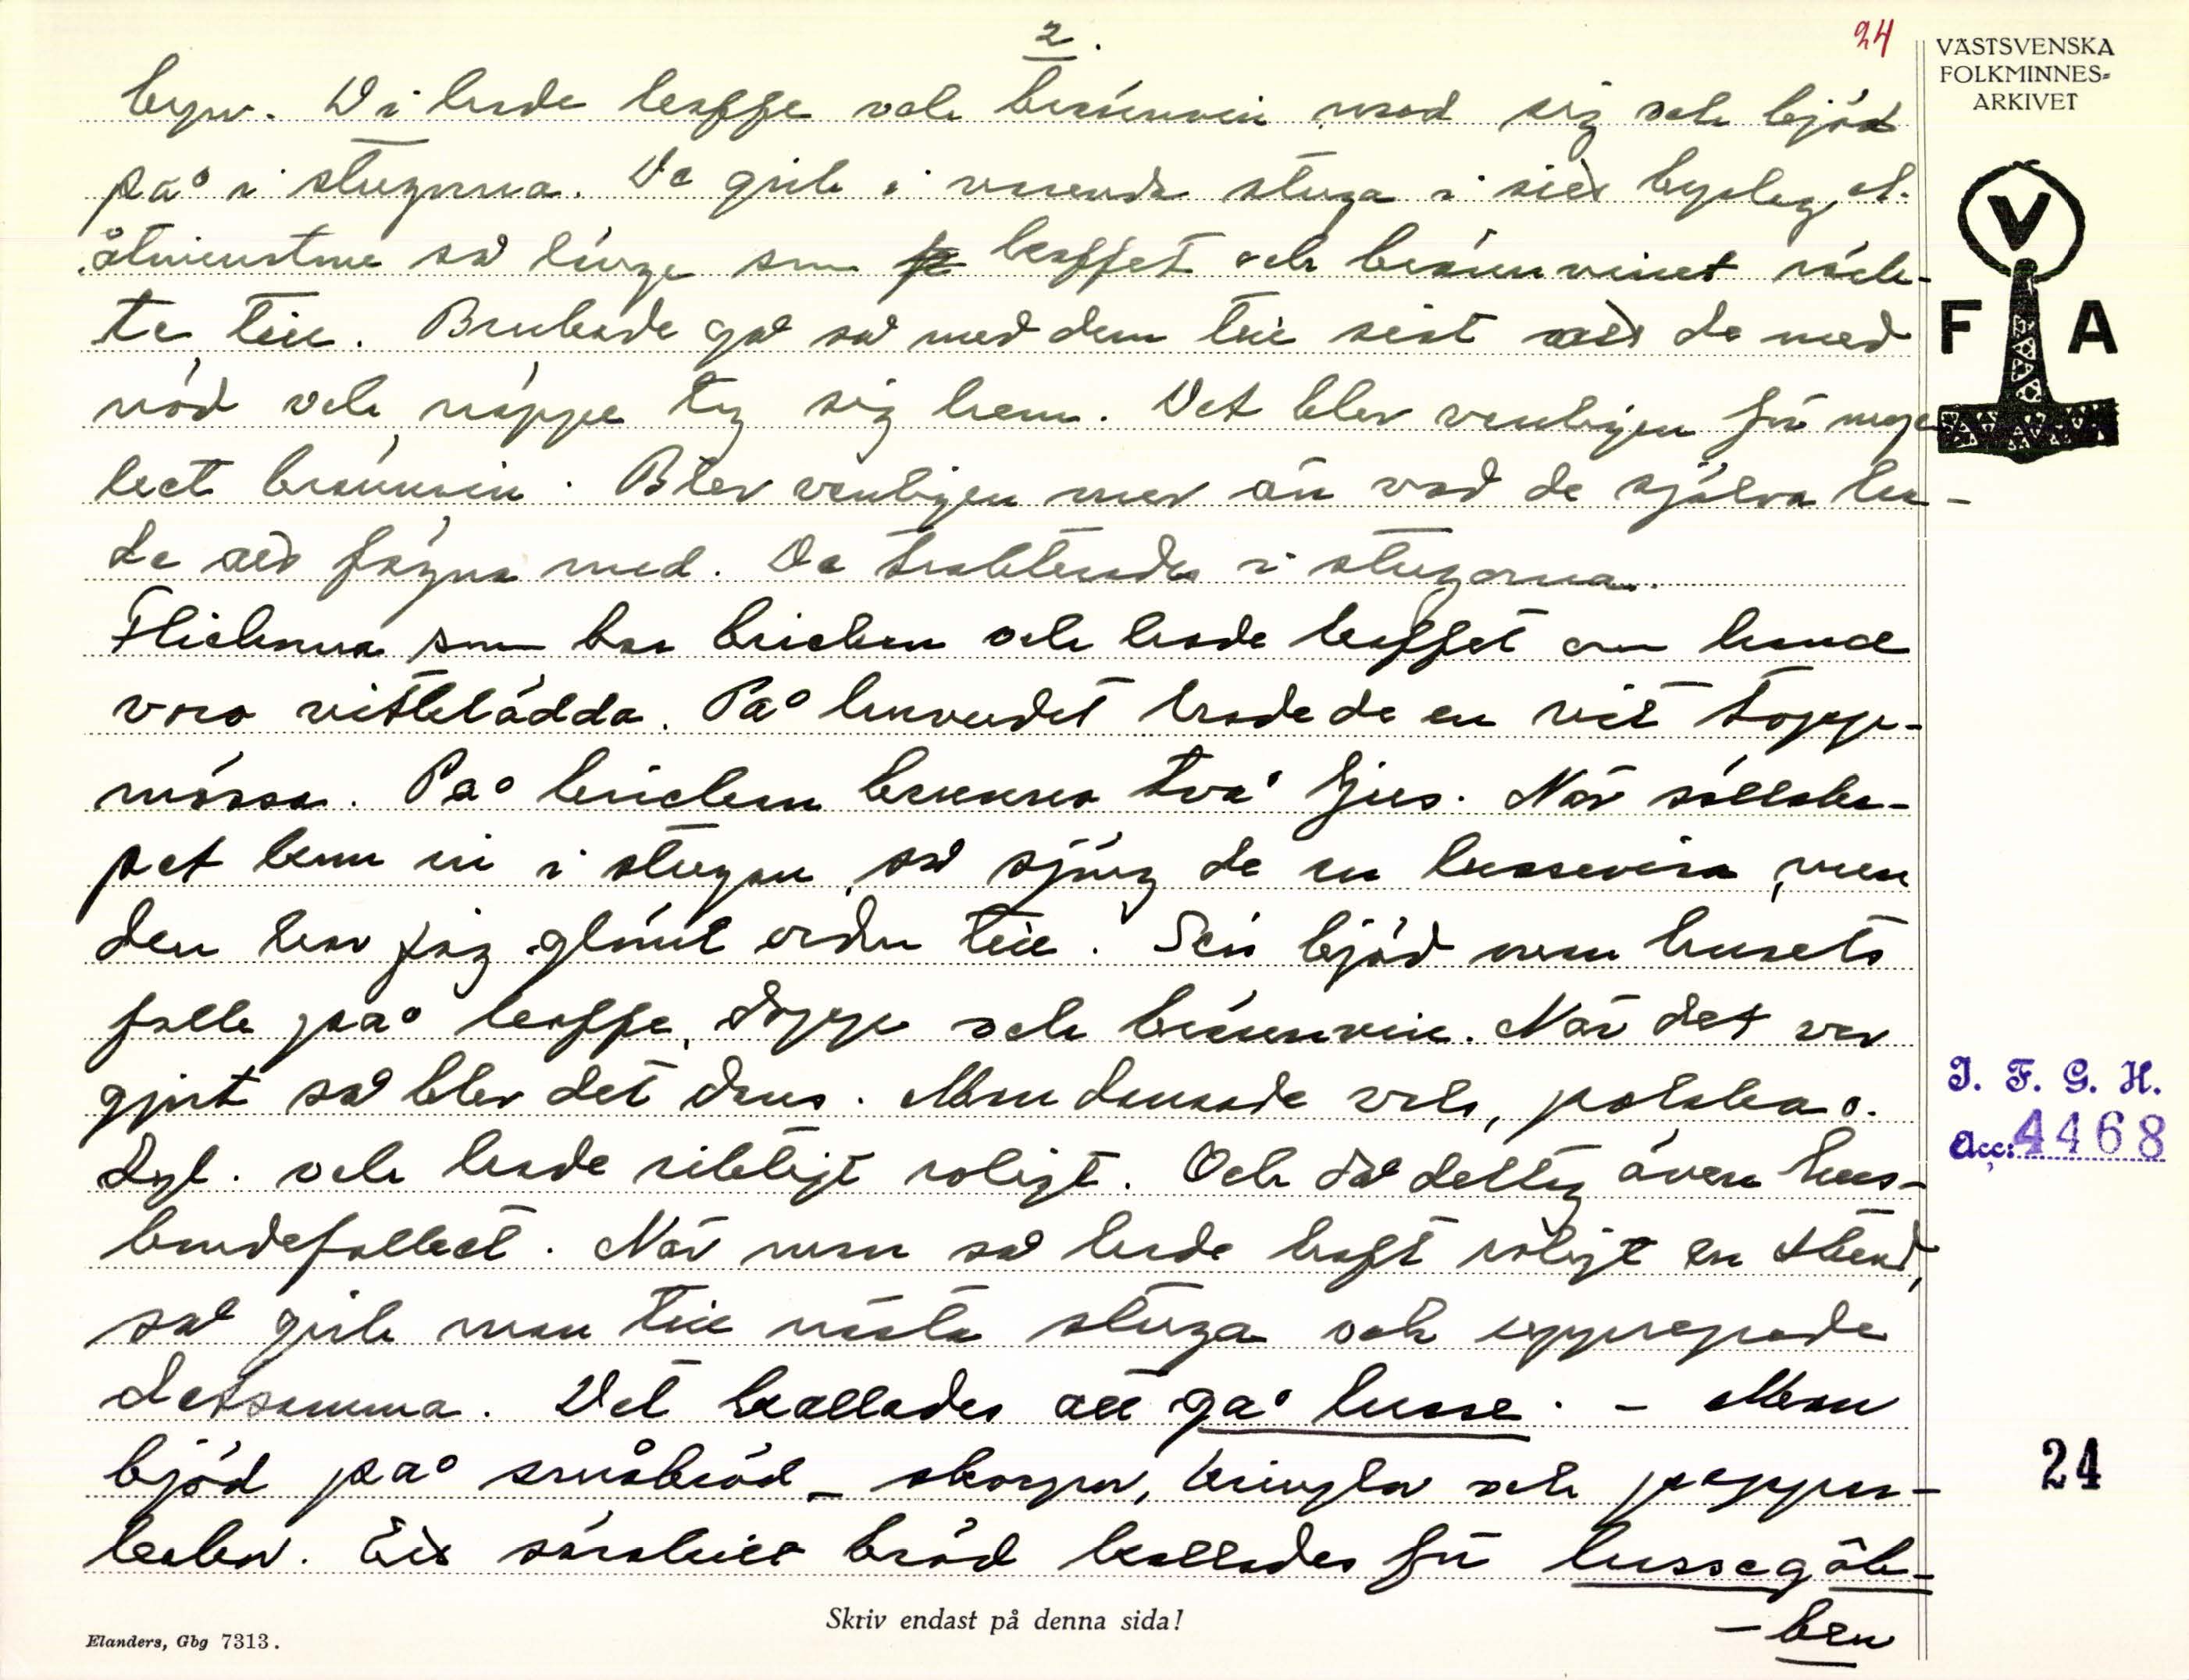 2.
24
VÄSTSVENSKA
FOLKMINNES-
ARKIVET
byn. Di hade kaffe och brännvin med sig och bjöd
på i stugorna. De gick i varenda stuga i sitt bylag, el.
åtminstone så länge som kaffet och brännvinet räck-
te till. Brukade gå så med dem till sist att de med
nöd och näppe tog sig hem. Det blev vanligen för myc-
ket brännvin. Blev vanligen mer än vad de själva ha-
de att fägna med. De trakterades i stugorna.
Flickorna som bar brickan och hade kaffet om hand
voro vitklädda. På huvudet hade de en vit topp-
mössa. På brickan brunno två ljus. När sällska-
pet kom in i stugan, så sjöng de en lussevisa, men
den har jag glömt orden till. Sen bjöd man husets
folk på kaffe, dopp och brännvin. När det var
gjort så blev det dans. Man dansade vals, polska o.
dyl. och hade riktigt roligt. Och då deltog även hus-
bondefolket. När man så hade haft roligt en stund,
så gick man till nästa stuga och upprepade
detsamma. Det kallades att gå lusse. - Man
bjöd på småbröd - skorpor, kringlor och peppar-
kakor. Ett särskilt bröd kallades för lussegåb-
- ben
V
F A
I. F. G. H.
Acc: 4468
24
Skriv endast på denna sida!
Elanders, Gbg 7313.